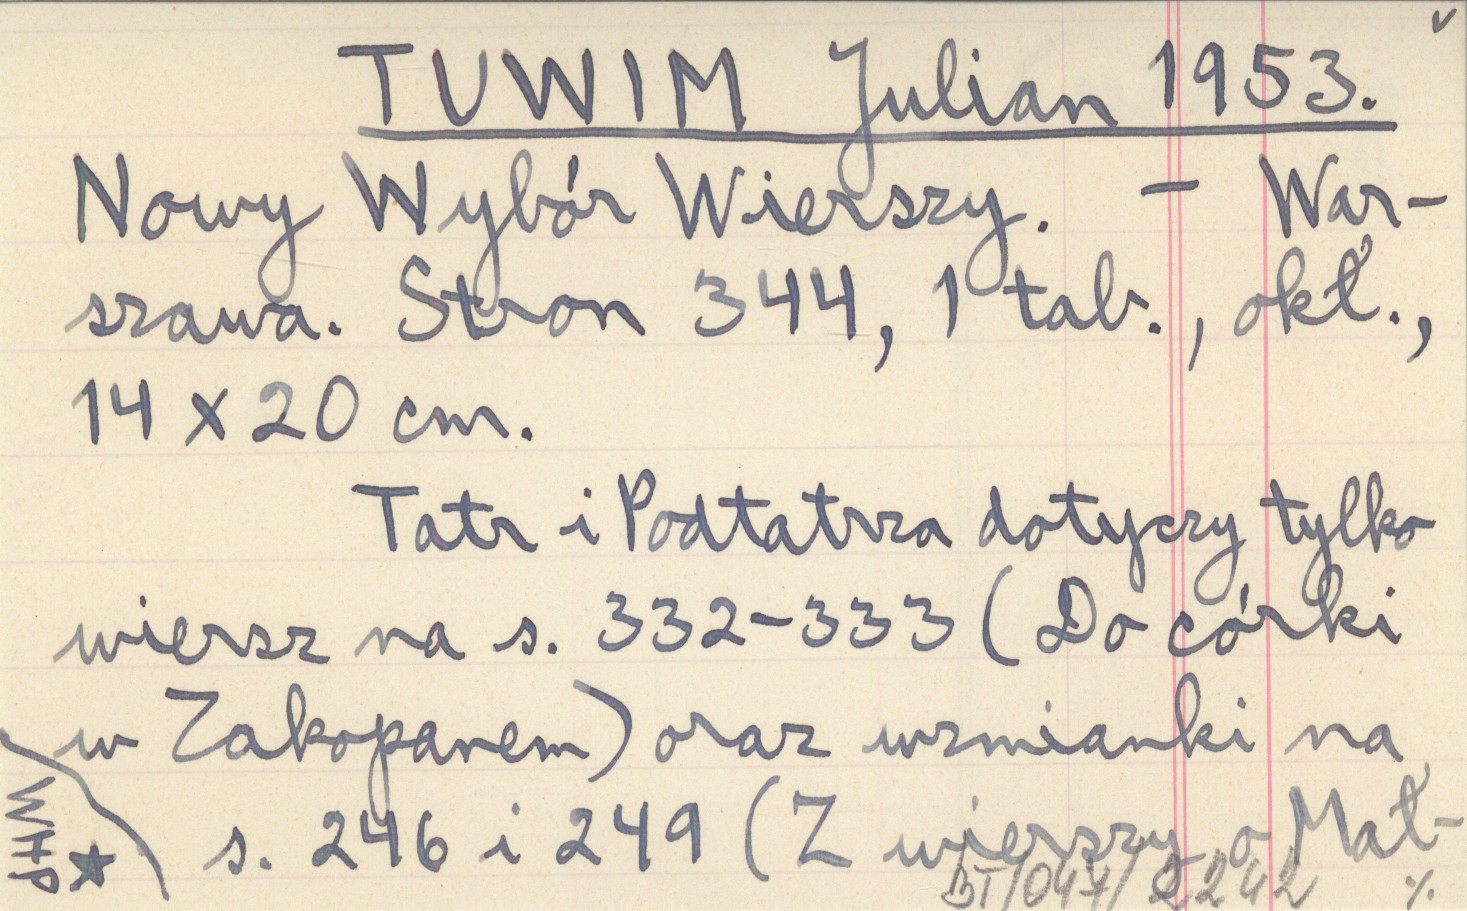 v
TUWIM Julian 1953.
Nowy Wybór Wierszy. – War-
szawa. Stron 344, 1 tab., okł.,
14 x 20 cm.
Tatr i Podtatrza dotyczy tylko
wiersz na s. 332-333 (Do córki
w Zakopanem) oraz wzmianki na
s. 246 i 249 (Z wierszy o Mał-
WHP
BT/047/2242
./.